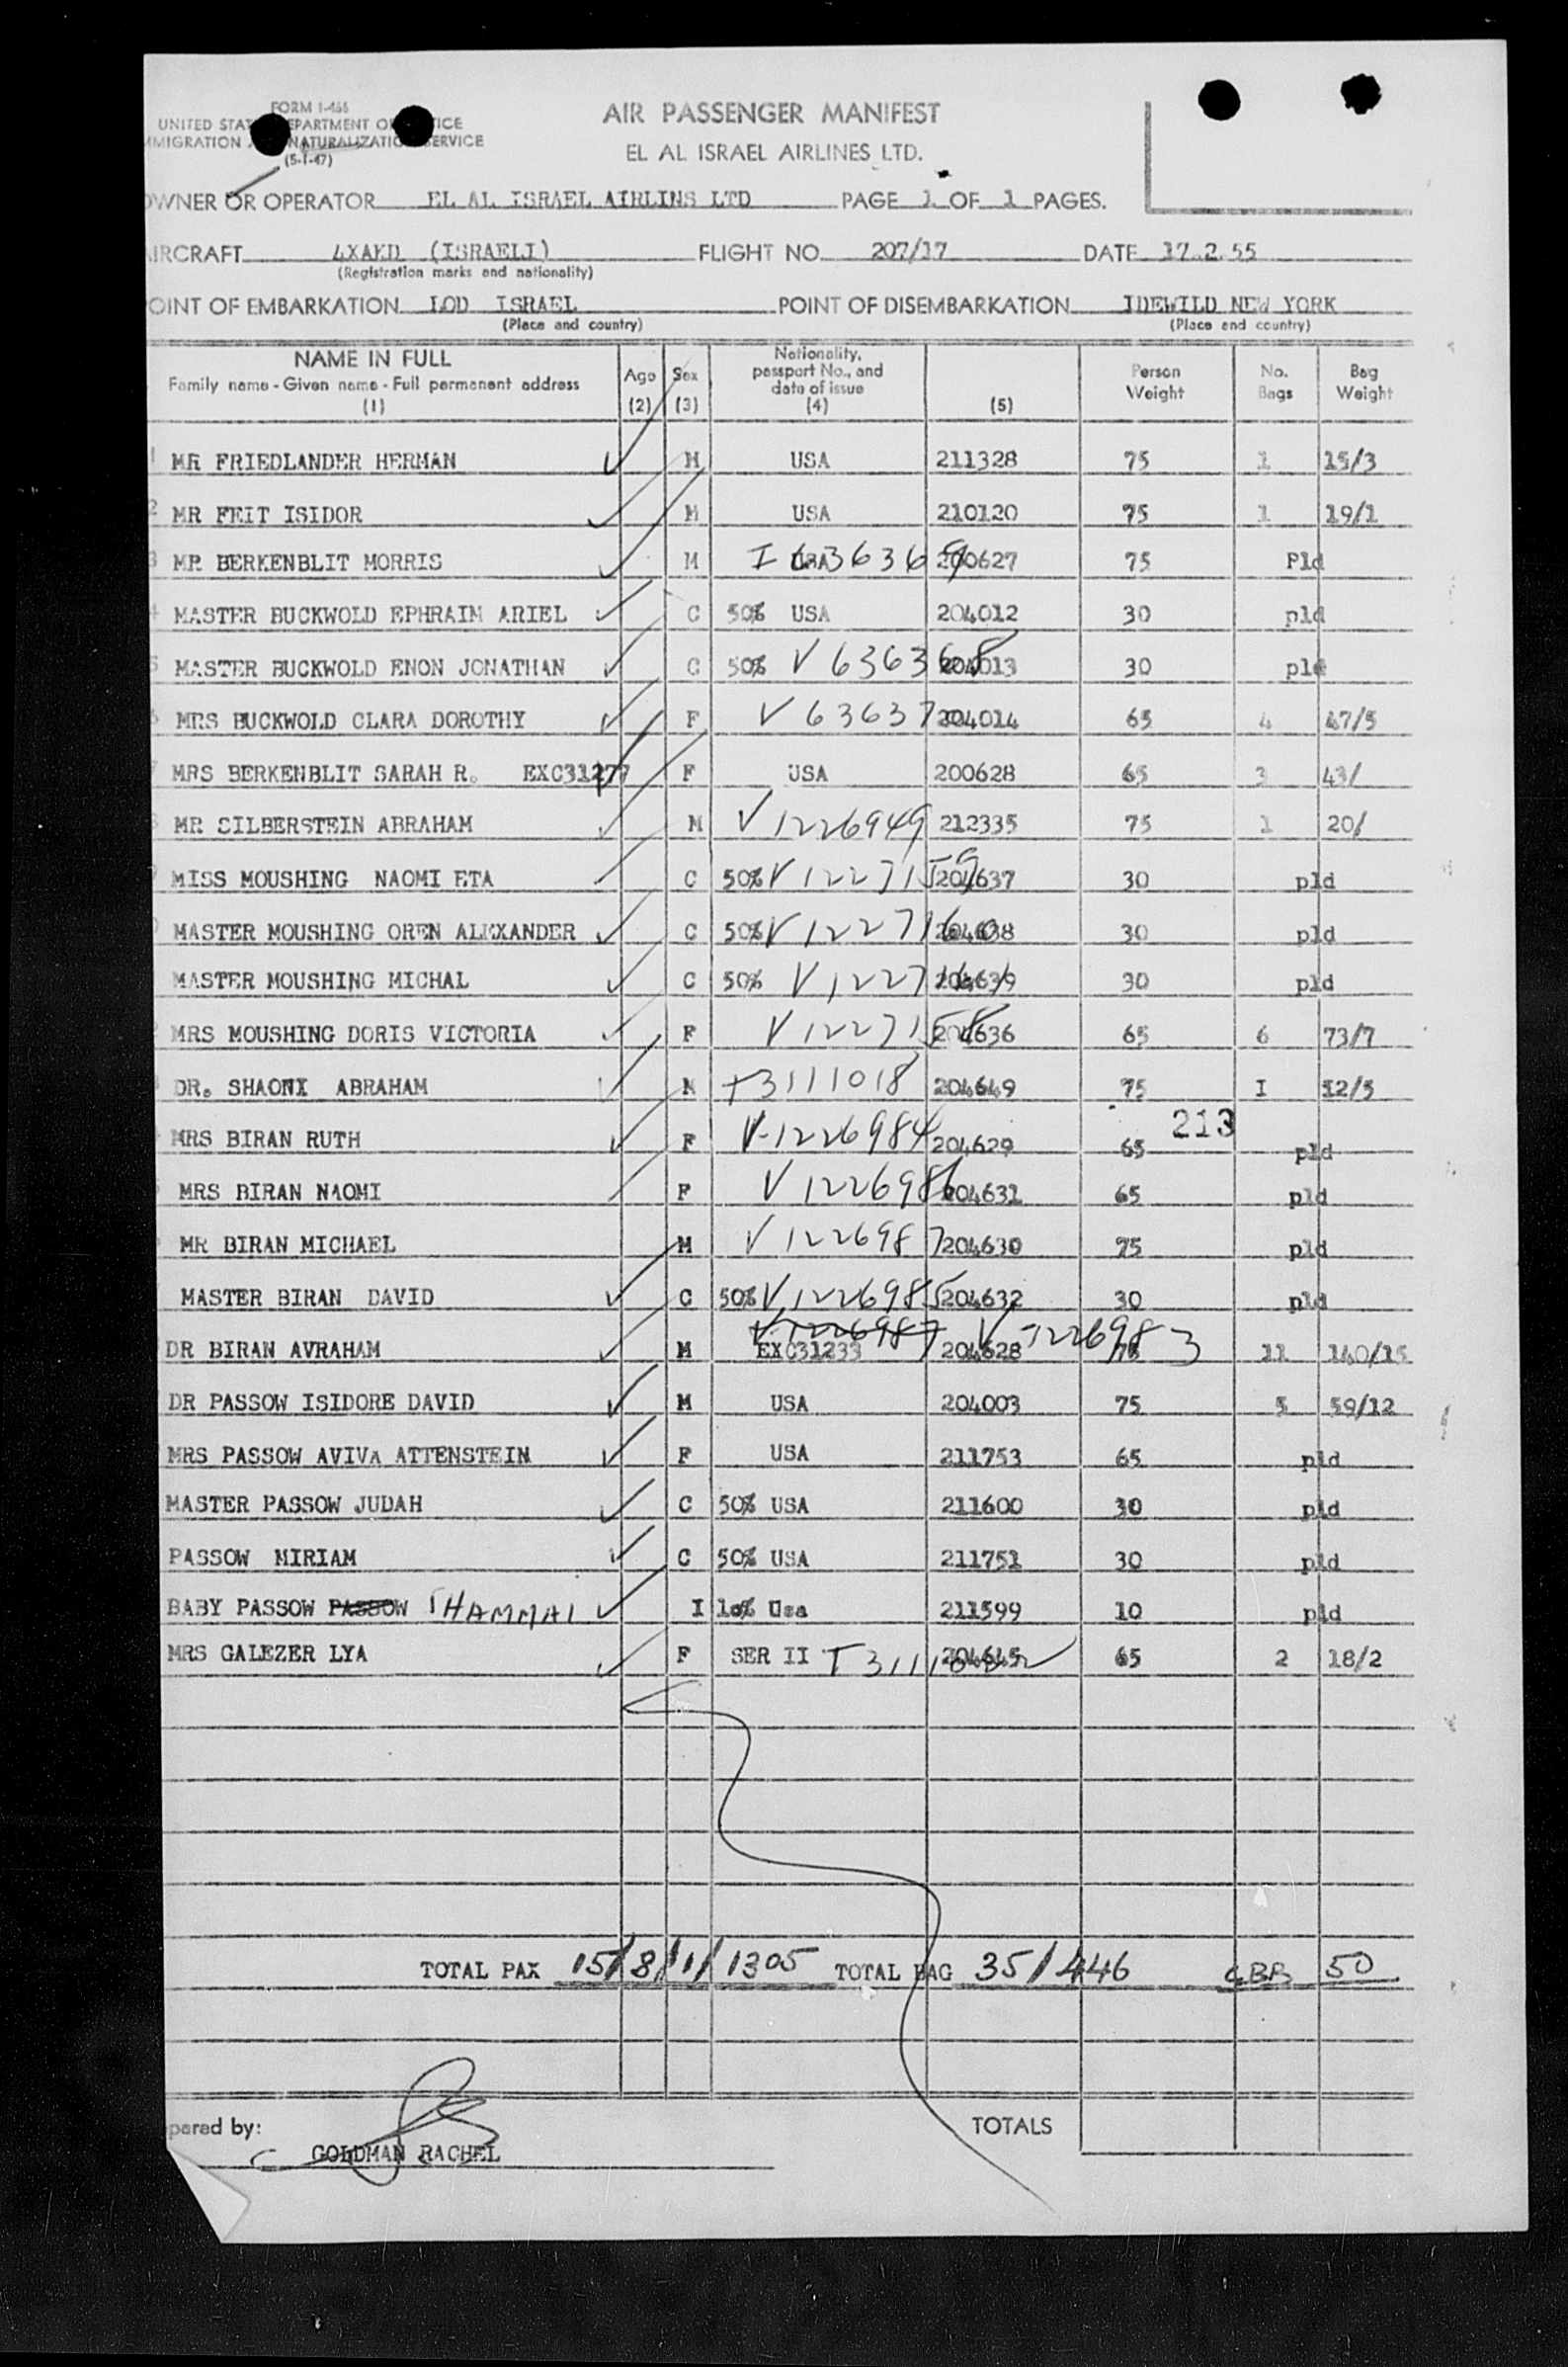 FORM I-466
UNITED STAT EPARTMENT O ICE
MMIGRATION NATURALIZATIO SERVICE
(5-1-47)
AIR PASSENGER MANIFEST
EL AL ISRAEL AIRLINES LTD.
OWNER OR OPERATOR EL AL ISRAEL AIRLINS LTD PAGE 1 OF 1 PAGES.
AIRCRAFT 4XAKD (ISRAELI) FLIGHT NO. 207/17 DATE 17.2.55
(Registration marks and nationality)
POINT OF EMBARKATION LOD ISRAEL POINT OF DISEMBARKATION IDEWILD NEW YORK
(Place and country) (Place and country)
NAME IN FULL
Family name - Given name - Full permanent address
(1)
Age (2) Sex (3)
Nationality, passport No., and date of issue (4)
(5) Person Weight No. Bags Bag Weight
1 MR FRIEDLANDER HERMAN M USA 211328 75 1 15/3
2 MR FEIT ISIDOR M USA 210120 75 1 19/1
3 MR BERKENBLIT MORRIS M USA 200627 75 Pld
4 MASTER BUCKWOLD EPHRAIM ARIEL C 50% USA 204012 30 pld
5 MASTER BUCKWOLD ENON JONATHAN C 50% V 636368 204013 30 pld
6 MRS BUCKWOLD CLARA DOROTHY F V 63637 204014 65 4 47/5
7 MRS BERKENBLIT SARAH R. EXC31277 F USA 200628 65 3 43/
8 MR SILBERSTEIN ABRAHAM M V 1226949 212335 75 1 20/
MISS MOUSHING NAOMI ETA C 50% V 1227159 204637 30 pld
MASTER MOUSHING OREN ALEXANDER C 50% V 1227160 204638 30 pld
MASTER MOUSHING MICHAL C 50% V 1227161 204639 30 pld
MRS MOUSHING DORIS VICTORIA F V 1227158 204636 65 6 73/7
DR. SHAONI ABRAHAM M T3111018 204649 75 I 12/5
213
MRS BIRAN RUTH F V-1226984 204629 65 pld
MRS BIRAN NAOMI F V 1226986 204631 65 pld
MR BIRAN MICHAEL M V 1226987 204630 75 pld
MASTER BIRAN DAVID C 50% V 1226985 204632 30 pld
V1226987 V-1226983
DR BIRAN AVRAHAM M EXC31233 204628 75 11 140/15
DR PASSOW ISIDORE DAVID M USA 204003 75 5 59/12
MRS PASSOW AVIVA ATTENSTEIN F USA 211753 65 pld
MASTER PASSOW JUDAH C 50% USA 211600 30 pld
PASSOW MIRIAM C 50% USA 211751 30 pld
BABY PASSOW PASSOW SHAMMAI I 10% Usa 211599 10 pld
MRS GALEZER LYA F SER II 204645 65 2 18/2
TOTAL PAX 15/8/1/1305 TOTAL BAG 35/446 CBB 50
pared by:
GOLDMAN RACHEL
TOTALS